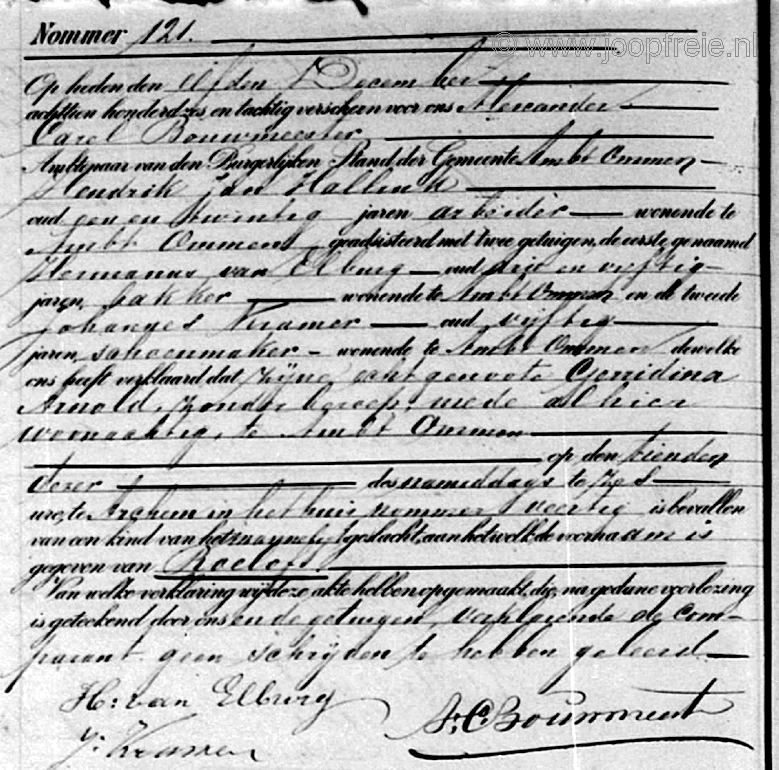 © www.joopfreie.nl
Nommer 121.
Op heden den elfden December
achttien honderd zes en tachtig verscheen voor ons Alexander
Carel Bouwmeester
Ambtenaar van den Burgerlijken Stand, der Gemeente Ambt Ommen
Hendrik Jan Hallink
oud een en twintig jaren arbeider wonende te
Ambt Ommen, geadsisteerd met twee getuigen, de eerste genaamd
Hermannus van Elburg oud drie en vijftig
jaren, bakker wonende te Ambt Ommen en de tweede
Johannes Kramer oud vijftig
jaren, schoenmaker wonende te Ambt Ommen dewelke
ons heeft verklaard dat zijne echtgenoote Gerridina
Arnold, zonder beroep, mede alhier
woonachtig, te Ambt Ommen
op den tienden
dezer des namiddags te zes
ure, te Archem in het huis nommer veertig is bevallen
van een kind van het mannelijk geslacht, aan hetwelk de voornaam is
gegeven van Roelof.
Van welke verklaring wij deze akte hebben opgemaakt, die, na gedane voorlezing
is geteekend door ons en de getuigen, verklarende de com-
parant geen schrijven te hebben geleerd
H: van Elburg
J: Kramer
A. C. Bouwmeest